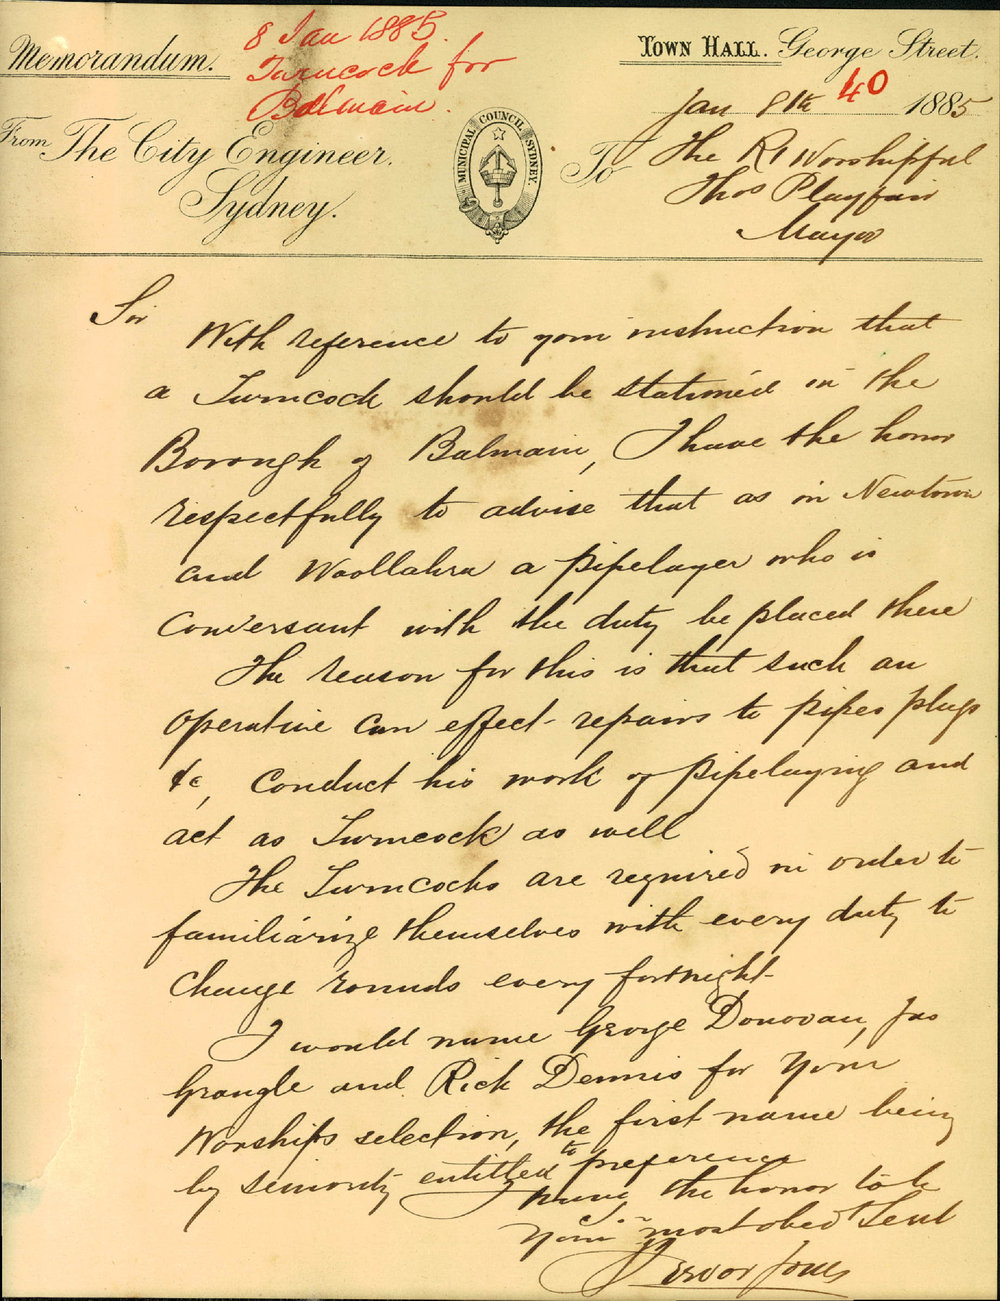 8 Jan 1885.
Turncock for
Balmain.
Memorandum.
Town Hall. George Street.
40
Jan 8th 1885
From The City Engineer.
Sydney.
MUNICIPAL COUNCIL SYDNEY.
To The Rt Worshipful
Thos Playfair
Mayor
Sir
With reference to your instruction that
a Turncock should be stationed in the
Borough of Balmain, I have the honor
respectfully to advise that as in Newtown
and Woollahra a pipelayer who is
conversant with the duty be placed there
The reason for this is that such an
operative can effect repairs to pipes plugs
&c, conduct his work of pipelaying and
act as Turncock as well
The Turncocks are required in order to
familiarize themselves with every duty to
change rounds every fortnight
I would name George Donovan, Jas
Grangle and Rick Dennis for Your
Worships selection, the first name being
by seniority entitled to preference
I have the honor to be
Sir
Your most obedt Servt
Trevor Jones